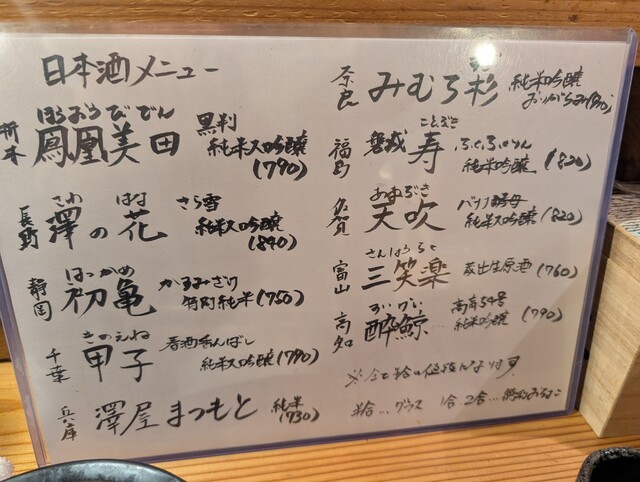 日本酒メニュー
栃木 鳳凰美田 ほうおうびでん 黒判
純米大吟醸
(790)
長野 澤の花 さわ はな さら雪
純米大吟醸
(840)
静岡 初亀 はつかめ かるみざけ
特別純米 (750)
千葉 甲子 きのえね 春酒香んばし
純米大吟醸 (790)
兵庫 澤屋まつもと 純米
(730)
奈良 みむろ杉 すぎ 純米吟醸
おりがらみ
福島 磐城 寿 ことぶき
純米吟醸 (820)
佐賀 天吹 あまぶき 酵母
純米大吟醸 (820)
富山 三笑楽 さんしょうらく 蔵出生原酒 (760)
高知 酔鯨 すいげい 高育54号
純米吟醸 (790)
※全て半合の値段になります
半合…グラス 1合、2合…